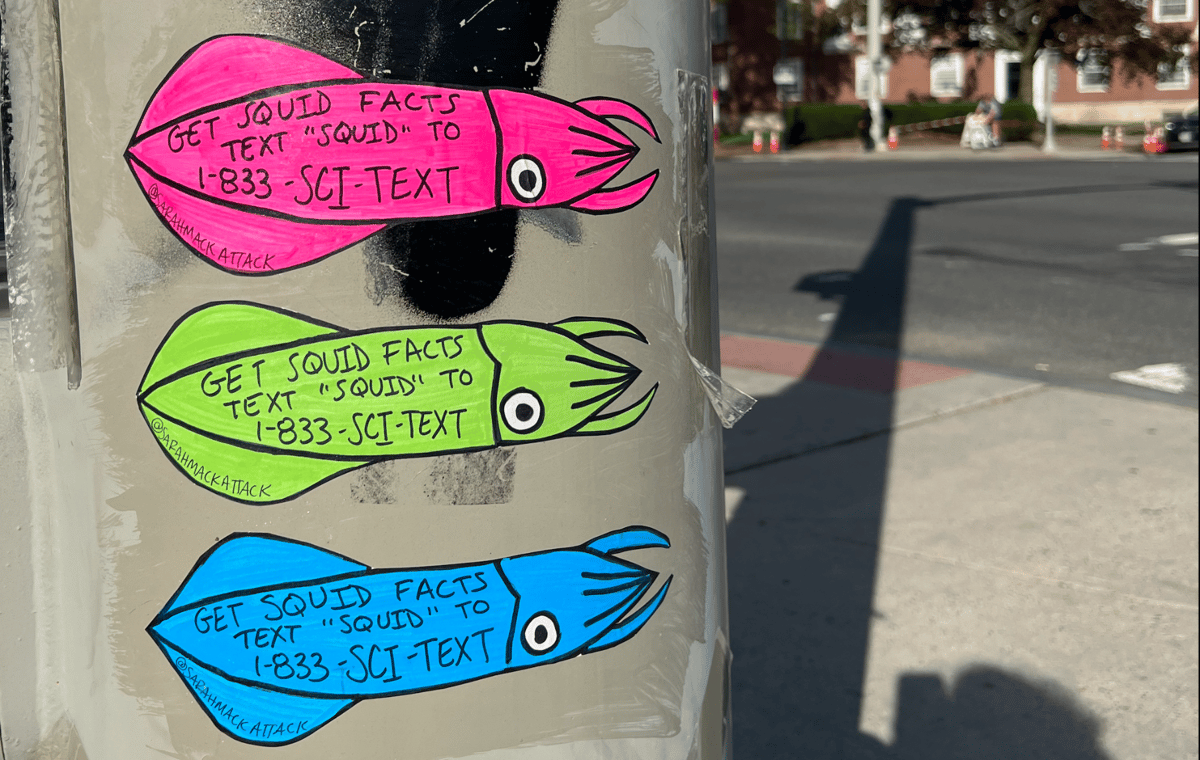 GET SQUID FACTS
TEXT "SQUID" TO
1-833-SCI-TEXT
@SARAHMACKATTACK
GET SQUID FACTS
TEXT "SQUID" TO
1-833-SCI-TEXT
@SARAHMACKATTACK
GET SQUID FACTS
TEXT "SQUID" TO
1-833-SCI-TEXT
@SARAHMACKATTACK